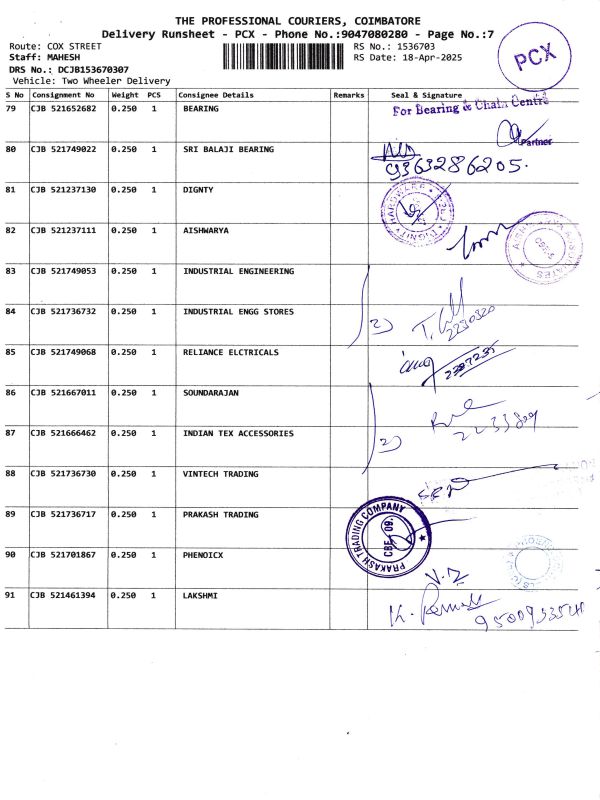 THE PROFESSIONAL COURIERS, COIMBATORE
Delivery Runsheet - PCX - Phone No.:9047080280 - Page No.:7
Route: COX STREET RS No.: 1536703
Staff: MAHESH RS Date: 18-Apr-2025
DRS No.: DCJB153670307
Vehicle: Two Wheeler Delivery
PCX
S No Consignment No Weight PCS Consignee Details Remarks Seal & Signature
79 CJB 521652682 0.250 1 BEARING For Bearing & Chain Centre
Partner
80 CJB 521749022 0.250 1 SRI BALAJI BEARING
9363286205.
81 CJB 521237130 0.250 1 DIGNTY
82 CJB 521237111 0.250 1 AISHWARYA
83 CJB 521749053 0.250 1 INDUSTRIAL ENGINEERING
84 CJB 521736732 0.250 1 INDUSTRIAL ENGG STORES 2)
2230320
85 CJB 521749068 0.250 1 RELIANCE ELCTRICALS
86 CJB 521667011 0.250 1 SOUNDARAJAN
87 CJB 521666462 0.250 1 INDIAN TEX ACCESSORIES 2)
88 CJB 521736730 0.250 1 VINTECH TRADING
89 CJB 521736717 0.250 1 PRAKASH TRADING PRAKASH TRADING COMPANY CBE. 09.
90 CJB 521701867 0.250 1 PHENOICX
91 CJB 521461394 0.250 1 LAKSHMI